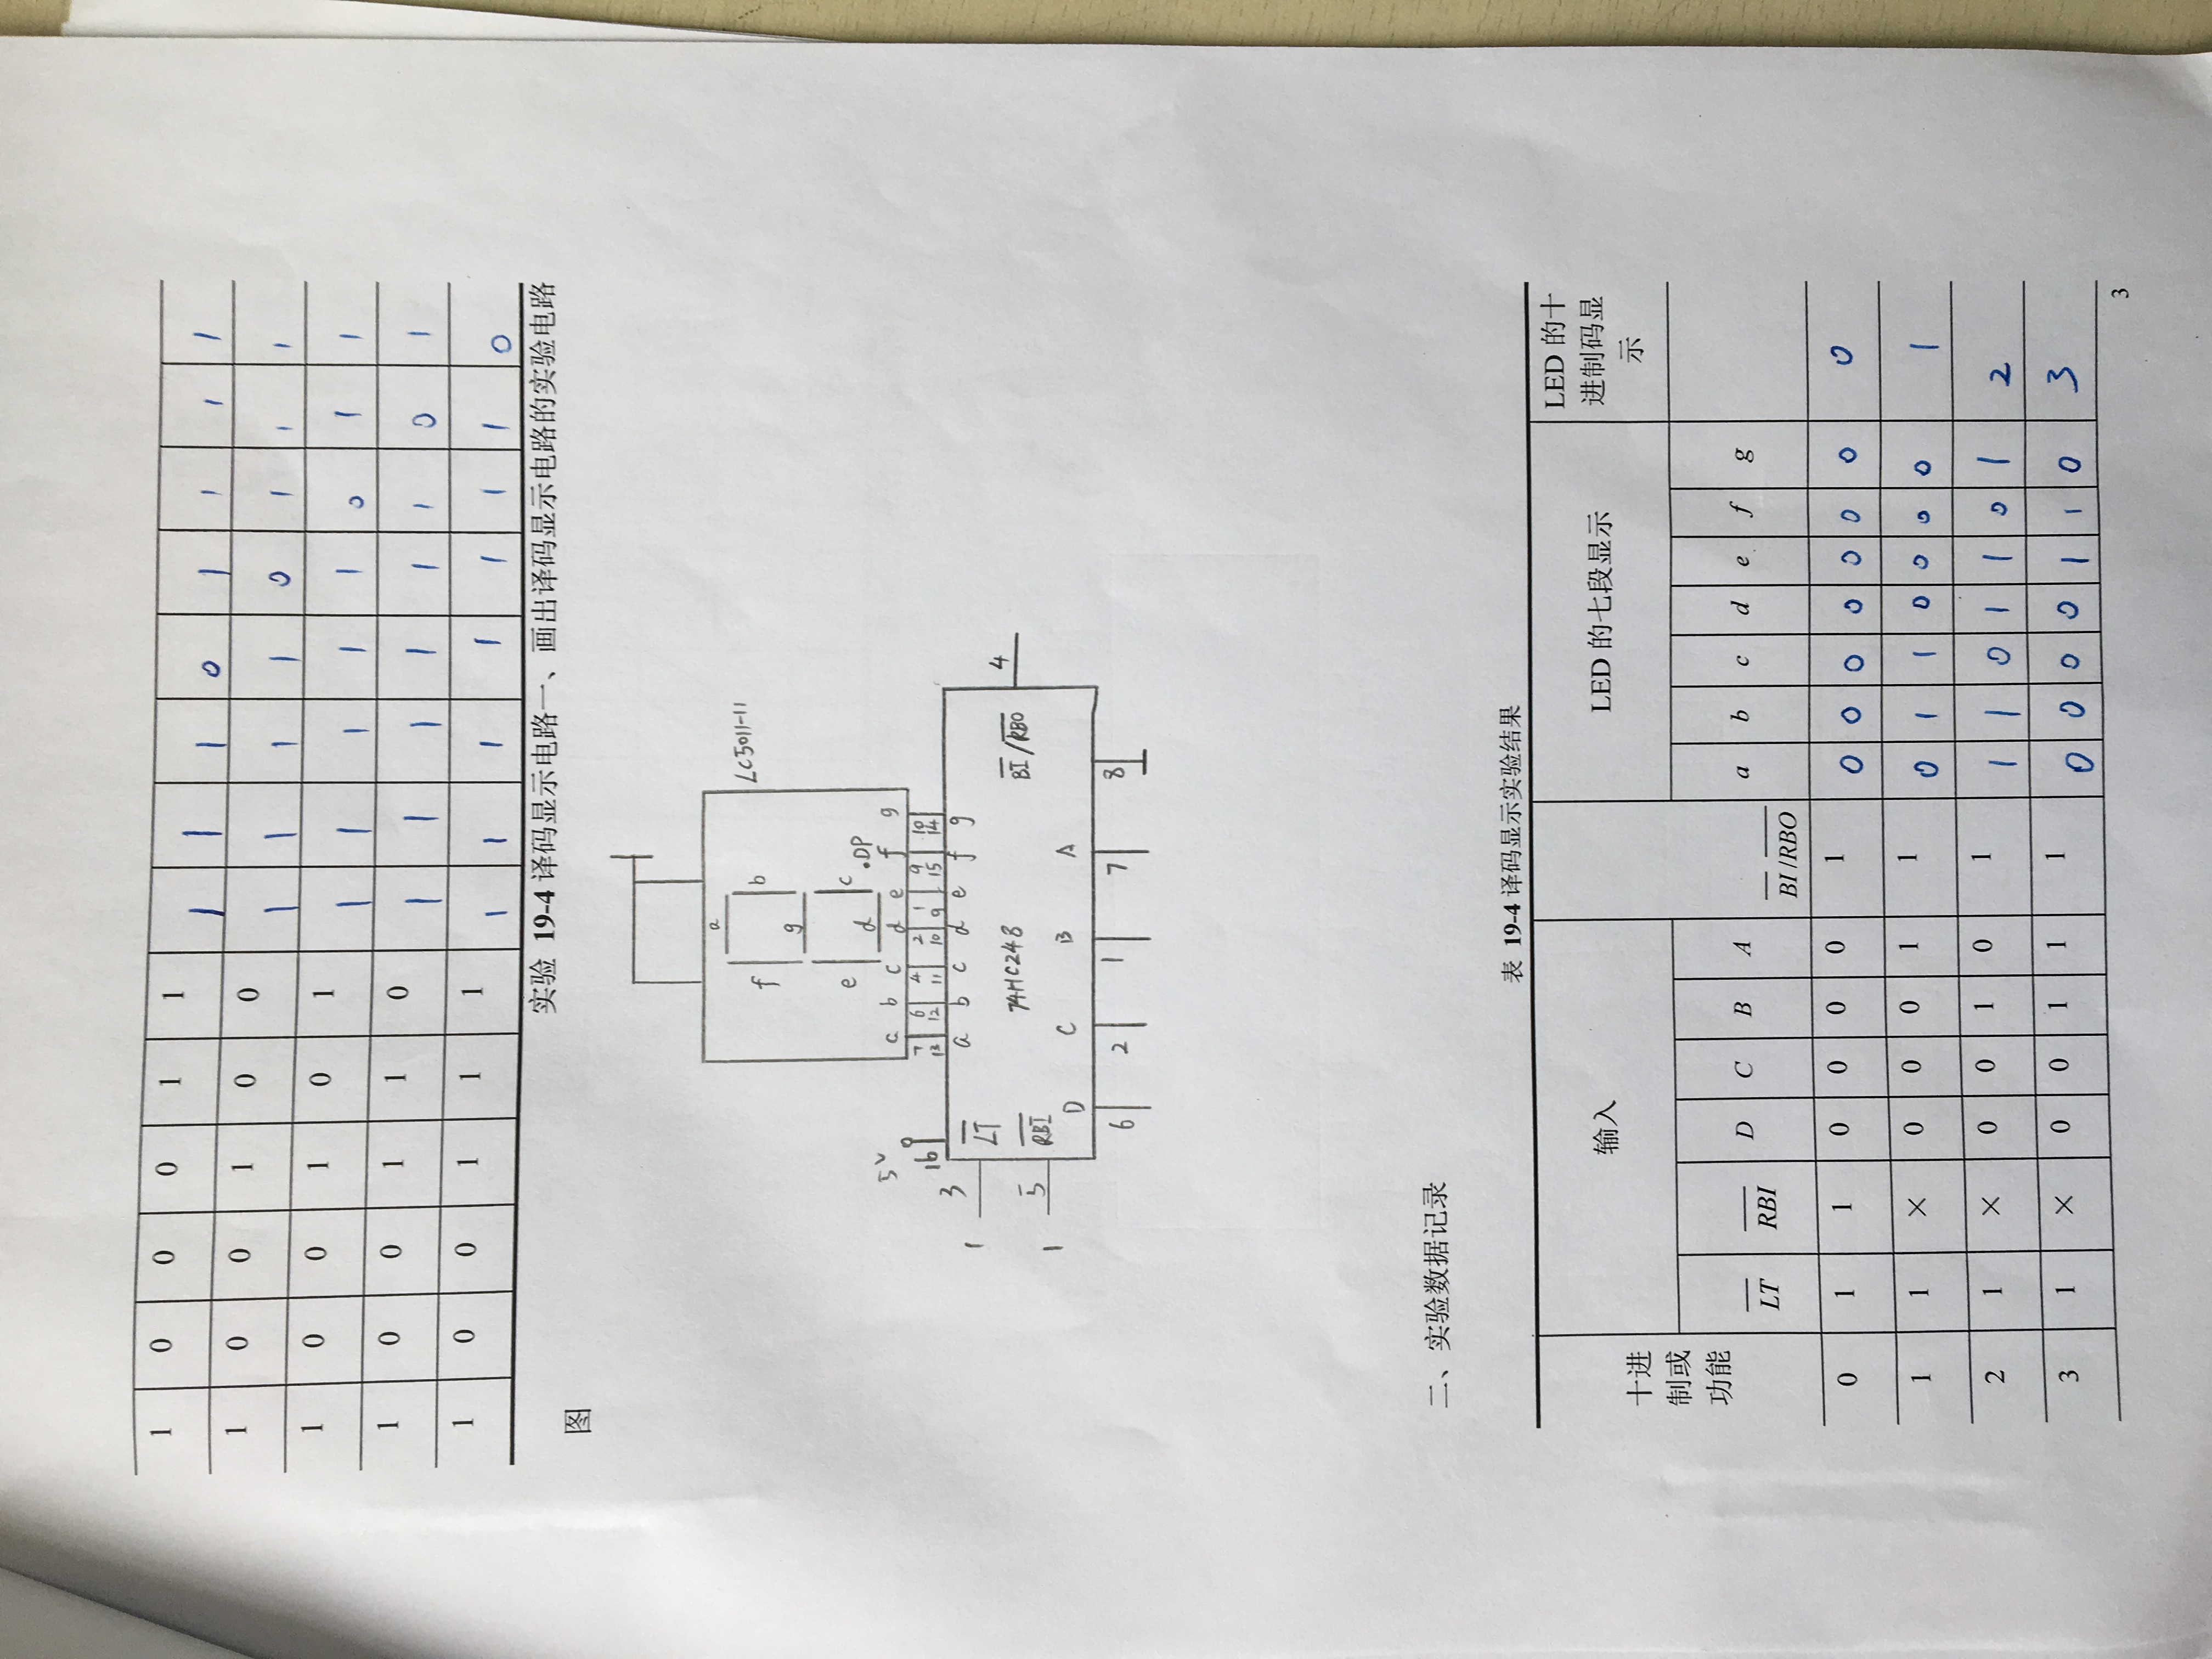 1 0 0 0 1 1 1 1 1 0 1 1 1 1
1 0 0 1 0 0 1 1 1 1 0 1 1 1
1 0 0 1 0 1 1 1 1 1 1 0 1 1
1 0 0 1 1 0 1 1 1 1 1 1 0 1
1 0 0 1 1 1 1 1 1 1 1 1 1 0
实验 19-4 译码显示电路一、画出译码显示电路的实验电路
图
a
LC5011-11
f b
g
e c
d .DP
a b c d e f g
5V
7 6 4 2 1 9 10
16 13 12 11 10 9 15 14
3 a b c d e f g
1 LT
74HC248 BI/RBO 4
1 5 RBI
D C B A
6 2 1 7 8
二、实验数据记录
表 19-4 译码显示实验结果
十进制或功能 输入 LED 的七段显示 LED 的十进制码显示
LT RBI D C B A BI/RBO a b c d e f g
0 1 1 0 0 0 0 1 0 0 0 0 0 0 0 0
1 1 × 0 0 0 1 1 0 1 1 0 0 0 0 1
2 1 × 0 0 1 0 1 1 1 0 1 1 0 1 2
3 1 × 0 0 1 1 1 0 0 0 0 1 1 0 3
3